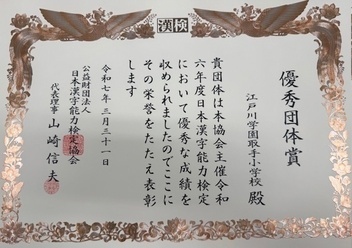 漢検
優秀団体賞
江戸川学園取手小学校 殿
貴団体は本協会主催令和
六年度日本漢字能力検定
において優秀な成績を
収められましたのでここに
その栄誉をたたえ表彰
します
令和七年三月三十一日
公益財団法人
日本漢字能力検定協会
代表理事 山崎信夫